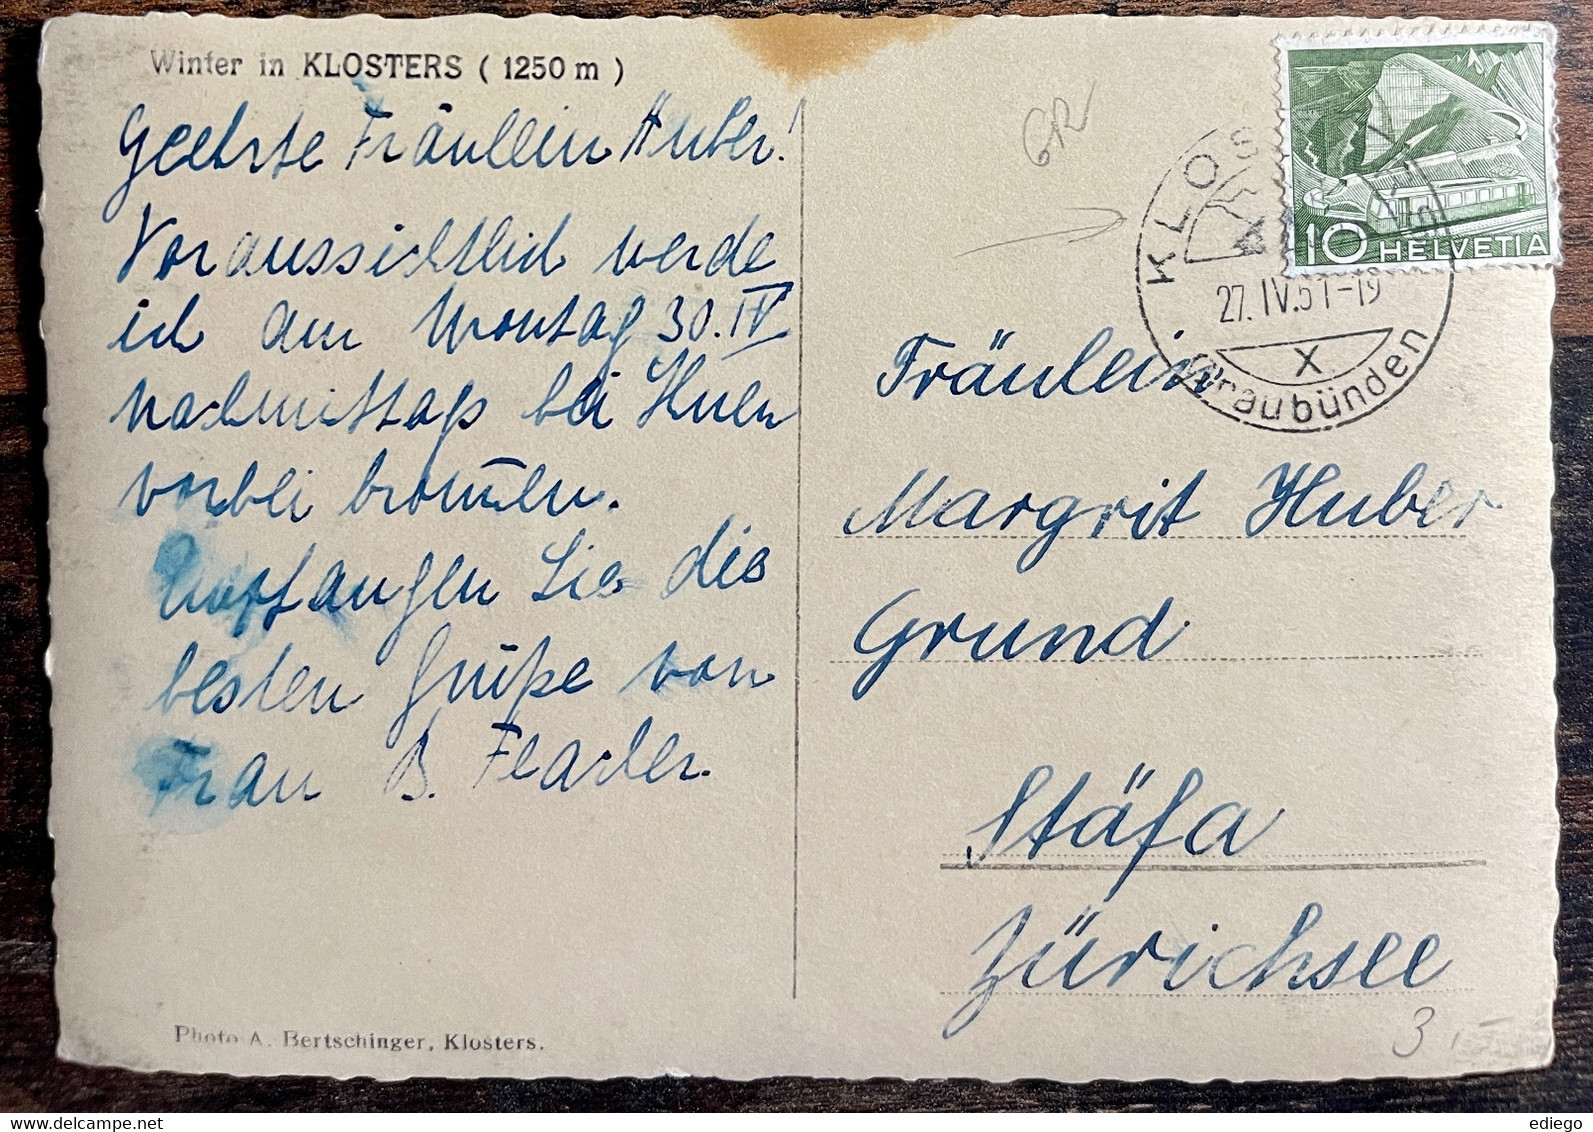 Winter in KLOSTERS ( 1250 m )
Geehrte Fräulein Huber!
Voraussichtlich werde
ich am Montag 30. IV
nachmittags bei Ihnen
vorbei kommen.
Empfangen Sie die
besten Grüße von
Frau B.
Photo A. Bertschinger, Klosters.
GR
10 HELVETIA
KLOS
27. IV. 51-19
X
Graubünden
Fräulein
Margrit Huber
Grund
Stäfa
Zürichsee
3.-
ediego